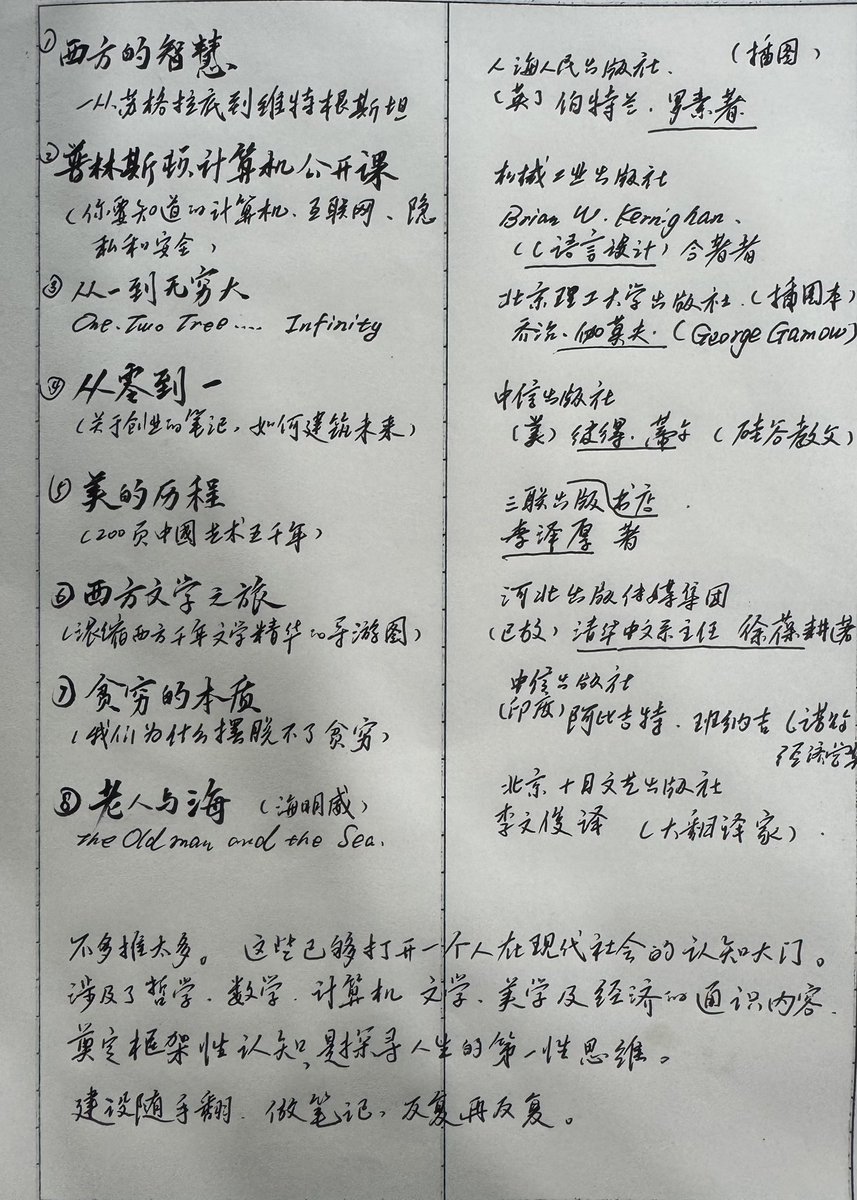 ① 西方的智慧
—从苏格拉底到维特根斯坦
人海人民出版社. (插图)
(英) 伯特兰.罗素著
② 普林斯顿计算机公开课
(你要知道的计算机、互联网、隐
私和安全)
机械工业出版社
Brian W. Kernighan.
(C语言设计) 合著者
③ 从一到无穷大
One.Two Tree.... Infinity
北京理工大学出版社.(插图本)
乔治.伽莫夫.(George Gamow)
④ 从零到一
(关于创业的笔记,如何建筑未来)
中信出版社
(美) 彼得.蒂尔 (硅谷教父)
⑤ 美的历程
(200页中國艺术五千年)
三联出版书店.
李泽厚 著
⑥ 西方文学之旅
(浓缩西方千年文学精华的导游图)
河北出版传媒集团
(已故) 清华中文系主任 徐葆耕(著
⑦ 贫穷的本质
(我们为什么摆脱不了贫穷)
中信出版社
(印度) 阿比吉特.班纳吉 (诺
经济学
⑧ 老人与海 (海明威)
the Old man and the Sea.
北京十月文艺出版社
李文俊译 (大翻译家).
不多推太多。 这些已够打开一个人在现代社会的认知大门。
涉及了哲学.数学.计算机 文学.美学及经济的通识内容.
奠定框架性认知,是探寻人生的第一性思维。
建设随手翻.做笔记,反复再反复。